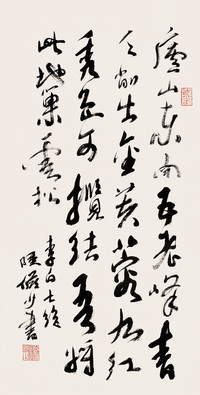 庐山东南五老峰青
天削出金芙蓉九江
秀色可揽结吾将
此地巢云松
李白七绝
陆俨少书